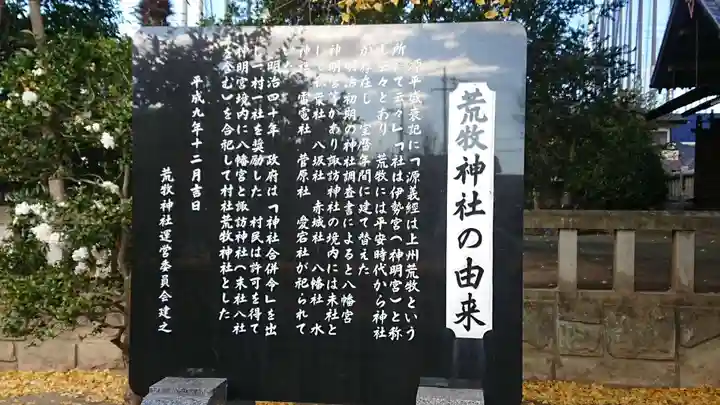 荒牧神社の由来
源平盛衰記に「源義經は上州荒牧という
所にて云々」「社は伊勢宮（神明宮）と称
し云々とあり 荒牧には平安時代から神社
が存在し 宝暦年間に建て替えた
明治初期の神社調査書によると八幡宮
神明宮があり諏訪神社の境内には末社と
して 葉社 八坂社 赤城社 八幡社 水
神社 雷電社 菅原社 愛宕社が祀られて
いた
明治四十年 政府は「神社合併令」を出
し一村一社を奨励した 村民は許可を得て
神明宮境内に八幡宮と諏訪神社（末社八社
を含む）を合祀して村社荒牧神社とした
平成九年十二月吉日
荒牧神社運営委員会建之